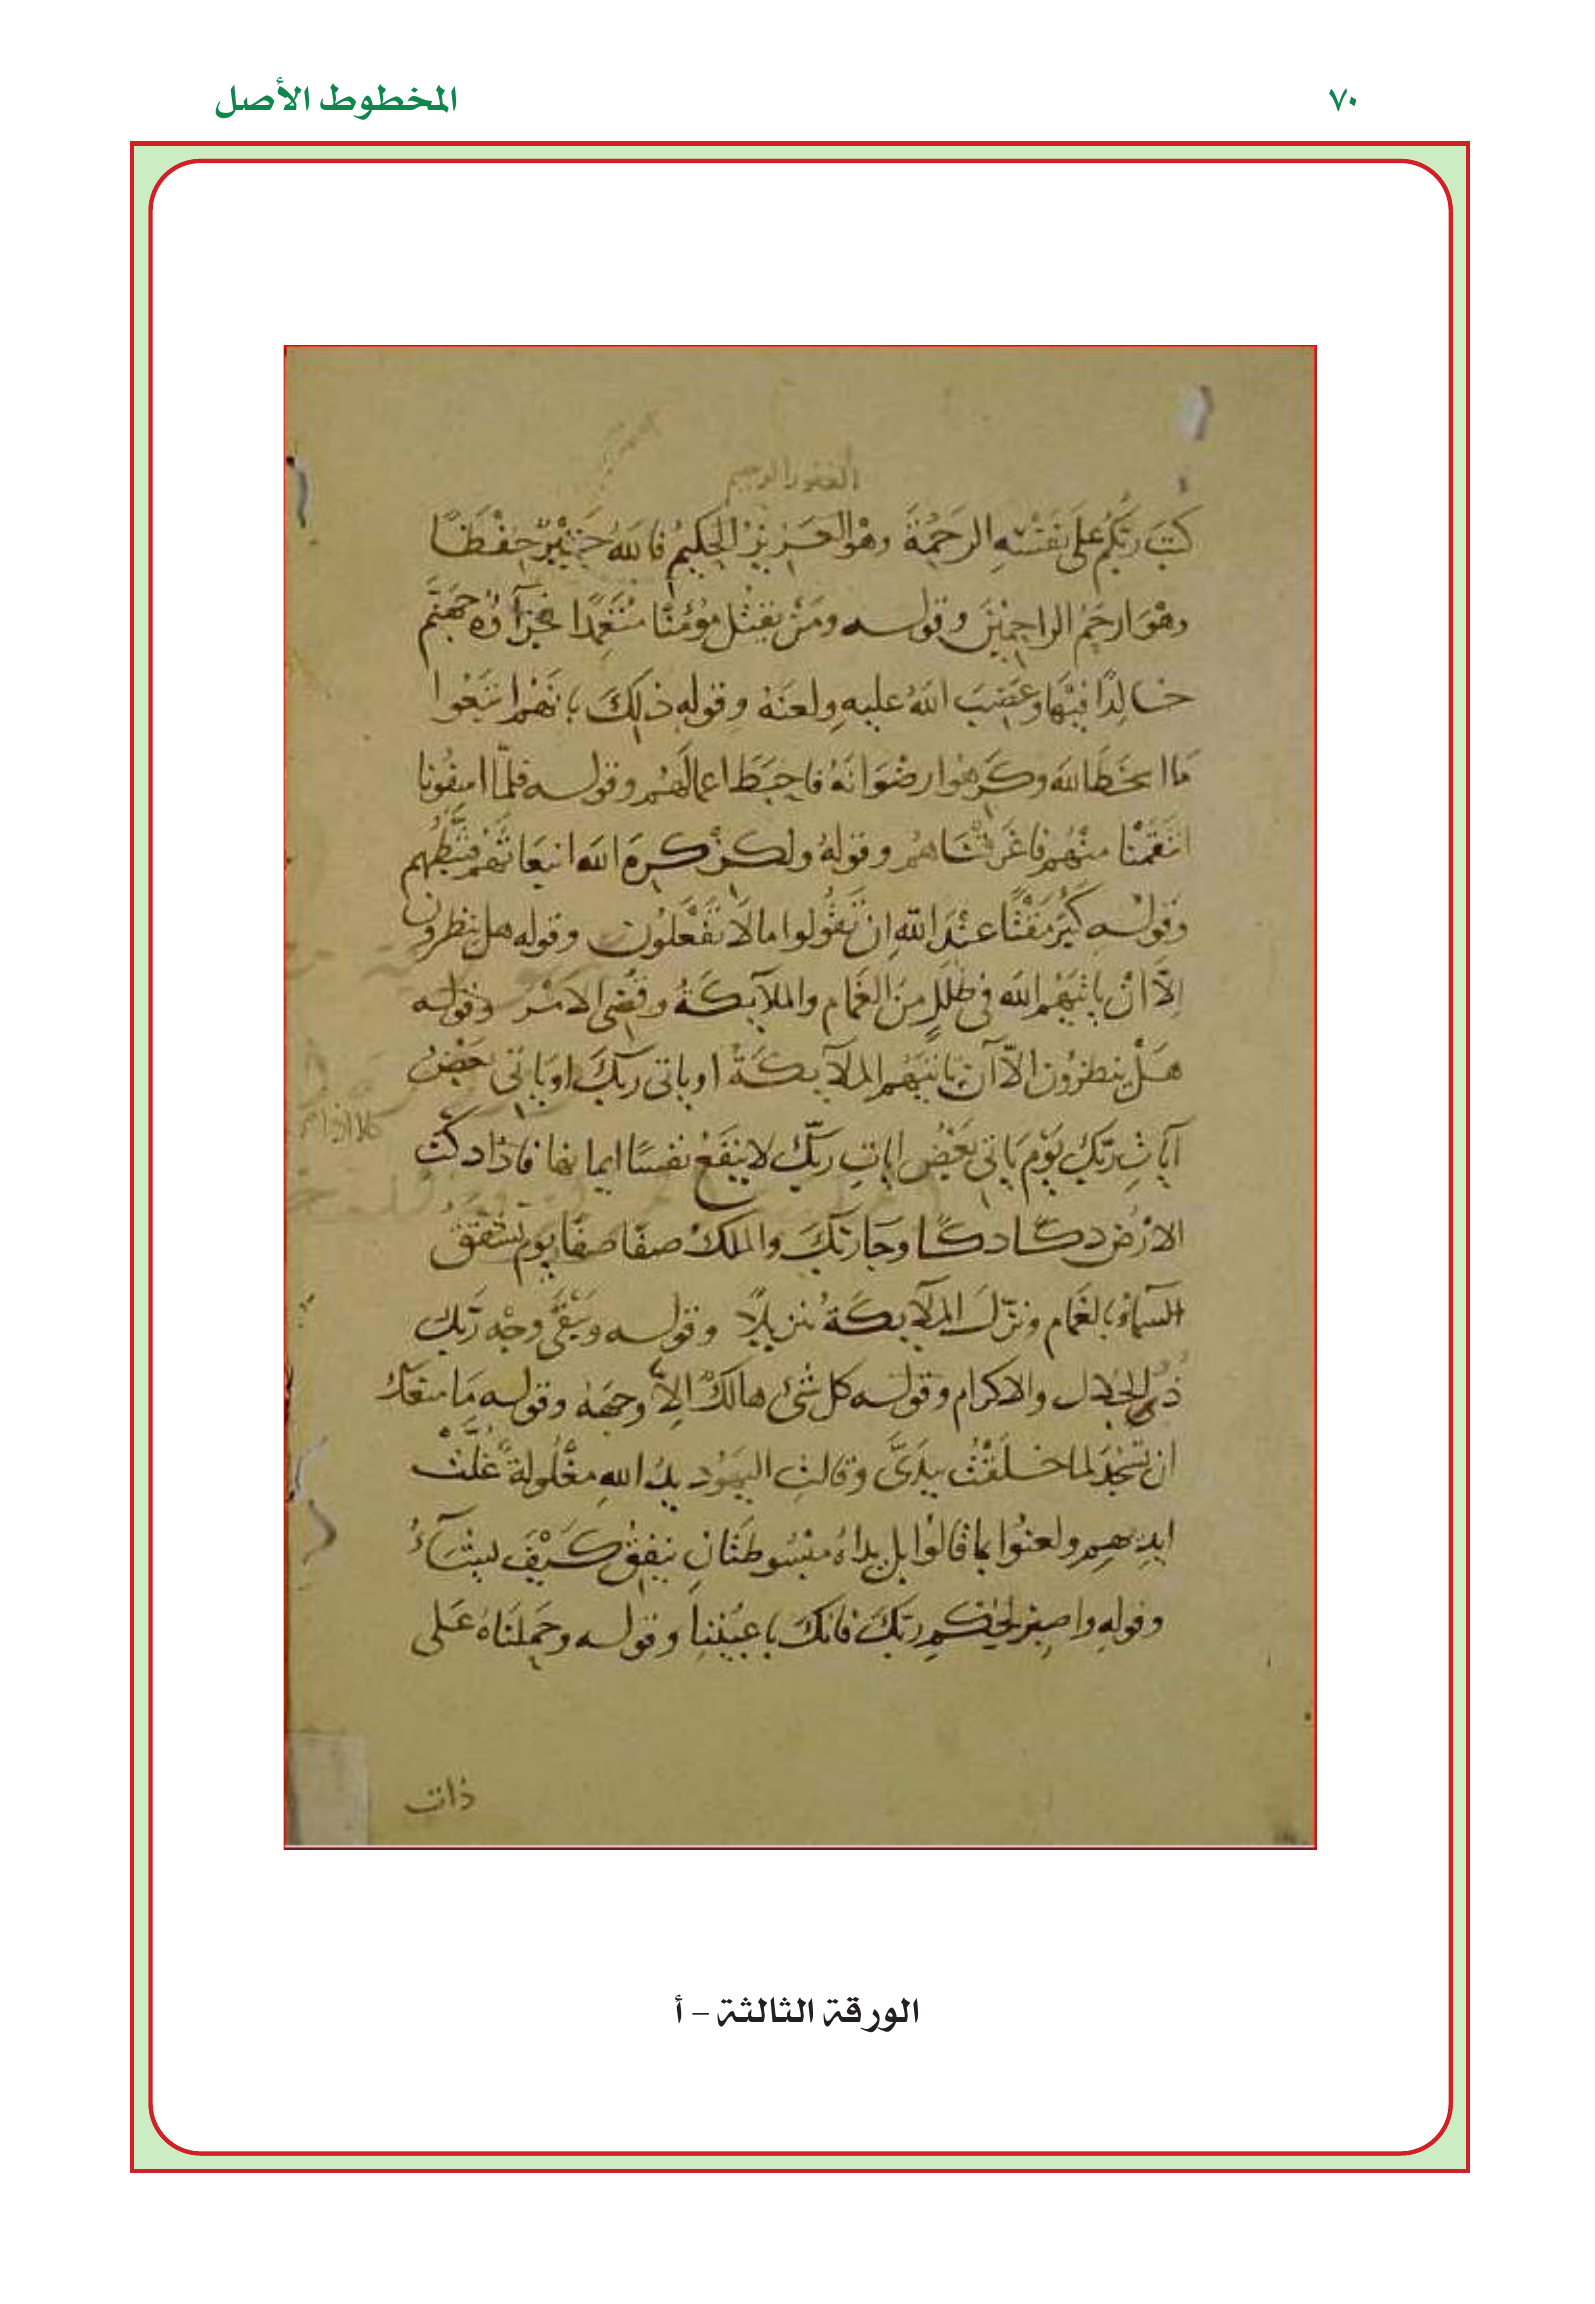 ٧٠
المخطوط الأصل
الغفور الرحيم
كتبَ ربّكم على نفسه الرحمة وهو العزيز الحكيم فالله خير حفظا
وهو ارحم الراحمين وقوله ومن يقتل مؤمنا متعمدا فجزآؤه جهنم
خالدا فيها وغضب الله عليه ولعنه وقوله ذلك بانهم اتبعوا
ما اسخط الله وكرهوا رضوانه فاحبط اعمالهم وقوله فلمّا اسفونا
انتقمنا منهم فاغرقناهم وقوله ولكن كره الله انبعاثهم فثبّطهم
وقوله كبر مقتا عند الله ان تقولوا ما لا تفعلون وقوله هل ينظرون
الّا ان ياتيهم الله في ظلل من الغمام والملآيكة وقضي الامر وقوله
هل ينظرون الّا ان ياتيهم الملآيكة او ياتي ربك او ياتي بعض
آيات ربّك يوم ياتي بعض ايات ربّك لا ينفع نفسا ايمانها فاذا دكت
كلا اذا
الارض دكّا دكّا وجا ربّك والملك صفّا صفّا يوم تشقق
السمآء بالغمام ونزّل الملآيكة تنزيلا وقوله ويبقى وجه ربّك
ذو الجلال والاكرام وقوله كل شئ هالك الّا وجهه وقوله ما منعك
ان تسجد لما خلقت بيديّ وقالت اليهود يد الله مغلولة غلّت
ايديهم ولعنوا بما قالوا بل يداه مبسوطتان ينفق كيف يشآء
وقوله واصبر لحكم ربّك فانك باعيننا وقوله وحملناه على
ذات
الورقة الثالثة – أ